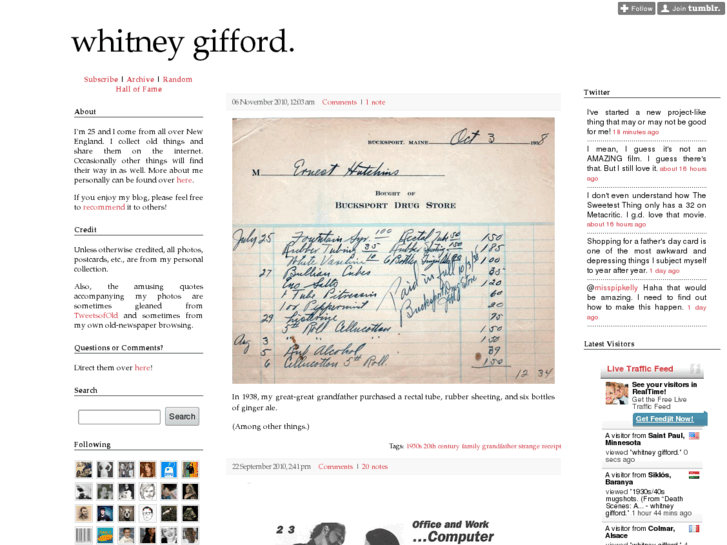 Follow
Join tumblr.
whitney gifford.
Subscribe | Archive | Random
Hall of Fame
About
I'm 25 and I come from all over New
England. I collect old things and
share them on the internet.
Occasionally other things will find
their way in as well. More about me
personally can be found over here.
If you enjoy my blog, please feel free
to recommend it to others!
Credit
Unless otherwise credited, all photos,
postcards, etc., are from my personal
collection.
Also, the amusing quotes
accompanying my photos are
sometimes gleaned from
TweetsofOld and sometimes from
my own old-newspaper browsing.
Questions or Comments?
Direct them over here!
Search
Search
Following
06 November 2010, 12:03 am Comments | 1 note
BUCKSPORT, MAINE Oct 3 1938
M Ernest Hutchins
BOUGHT OF
BUCKSPORT DRUG STORE
July 25 Fountain Syr 1.00 Rectal Tube 50 150
Rubber Tubing 35 Rubber 150 185
White Vaseline 10 6 Bottles Ginger Ale 100
27 Bullian Cubes 30
1 Tube 100
100 Peppermint 100
29 Listerine 50
5th Roll Cellucotton 150
Aug 3 Rub Alcohol 39
5
6 Cellucotton 5th Roll. 150
12 34
Paid in full 10/3/38
Bucksport Drug Store
In 1938, my great-great grandfather purchased a rectal tube, rubber sheeting, and six bottles
of ginger ale.
(Among other things.)
Tags: 1930s 20th century family grandfather strange receipt
22 September 2010, 2:41 pm Comments | 20 notes
2 3
Office and Work
...Computer
Twitter
I've started a new project-like
thing that may or may not be good
for me! 18 minutes ago
I mean, I guess it's not an
AMAZING film. I guess there's
that. But I still love it. about 16 hours
ago
I don't even understand how The
Sweetest Thing only has a 32 on
Metacritic. I g.d. love that movie.
about 16 hours ago
Shopping for a father's day card is
one of the most awkward and
depressing things I subject myself
to year after year. 1 day ago
@misspipkelly Haha that would
be amazing. I need to find out
how to make this happen. 1 day
ago
Latest Visitors
Live Traffic Feed
See your visitors in
RealTime!
Get the Free Live
Traffic Feed
Get Feedjit Now!
A visitor from Saint Paul,
Minnesota
viewed "whitney gifford." 0
secs ago
A visitor from Siklós,
Baranya
viewed "1930s/40s
mugshots. (From "Death
Scenes: A... - whitney
gifford." 1 hour 44 mins ago
A visitor from Colmar,
Alsace
viewed "whitney gifford." 2